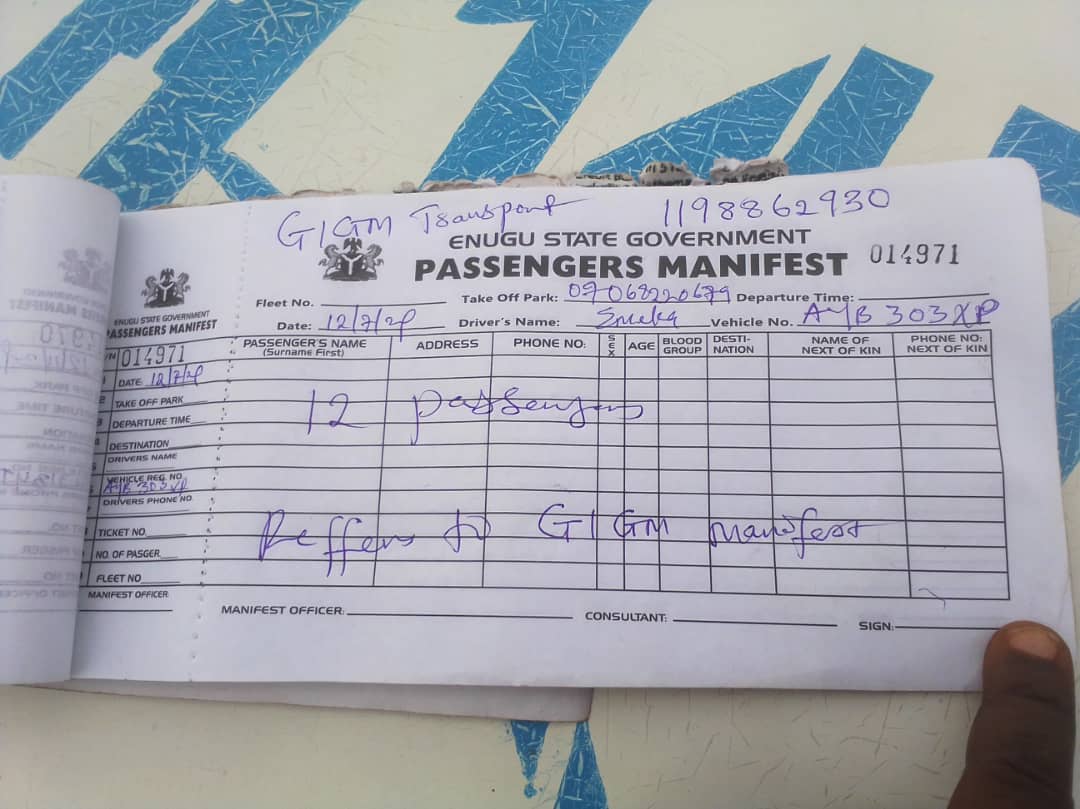 GIGM Transport 1198862930
ENUGU STATE GOVERNMENT
PASSENGERS MANIFEST 014971
Fleet No. Take Off Park: 07068220679 Departure Time:
Date: 12/7/24 Driver's Name: Emeka Vehicle No. AYB 303 XP
PASSENGER'S NAME (Surname First) ADDRESS PHONE NO: SEX AGE BLOOD GROUP DESTI-NATION NAME OF NEXT OF KIN PHONE NO: NEXT OF KIN
12 passengers
Reffers to GIGM manifest
MANIFEST OFFICER: CONSULTANT: SIGN:
ENUGU STATE GOVERNMENT
PASSENGERS MANIFEST
014971
DATE 12/7/24
TAKE OFF PARK
DEPARTURE TIME
DESTINATION
DRIVERS NAME
VEHICLE REG. NO
AYB 303 XP
DRIVERS PHONE NO.
TICKET NO
NO. OF PASGER
FLEET NO
MANIFEST OFFICER